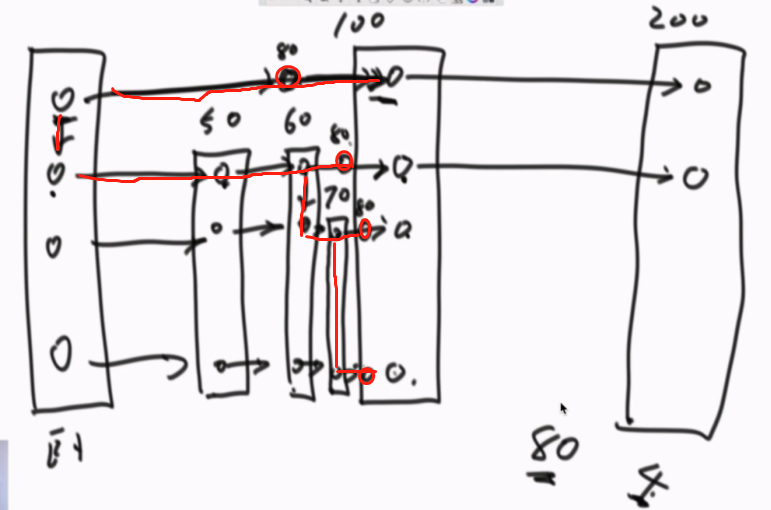 100 200
80
50 60
80
70
80
80
4